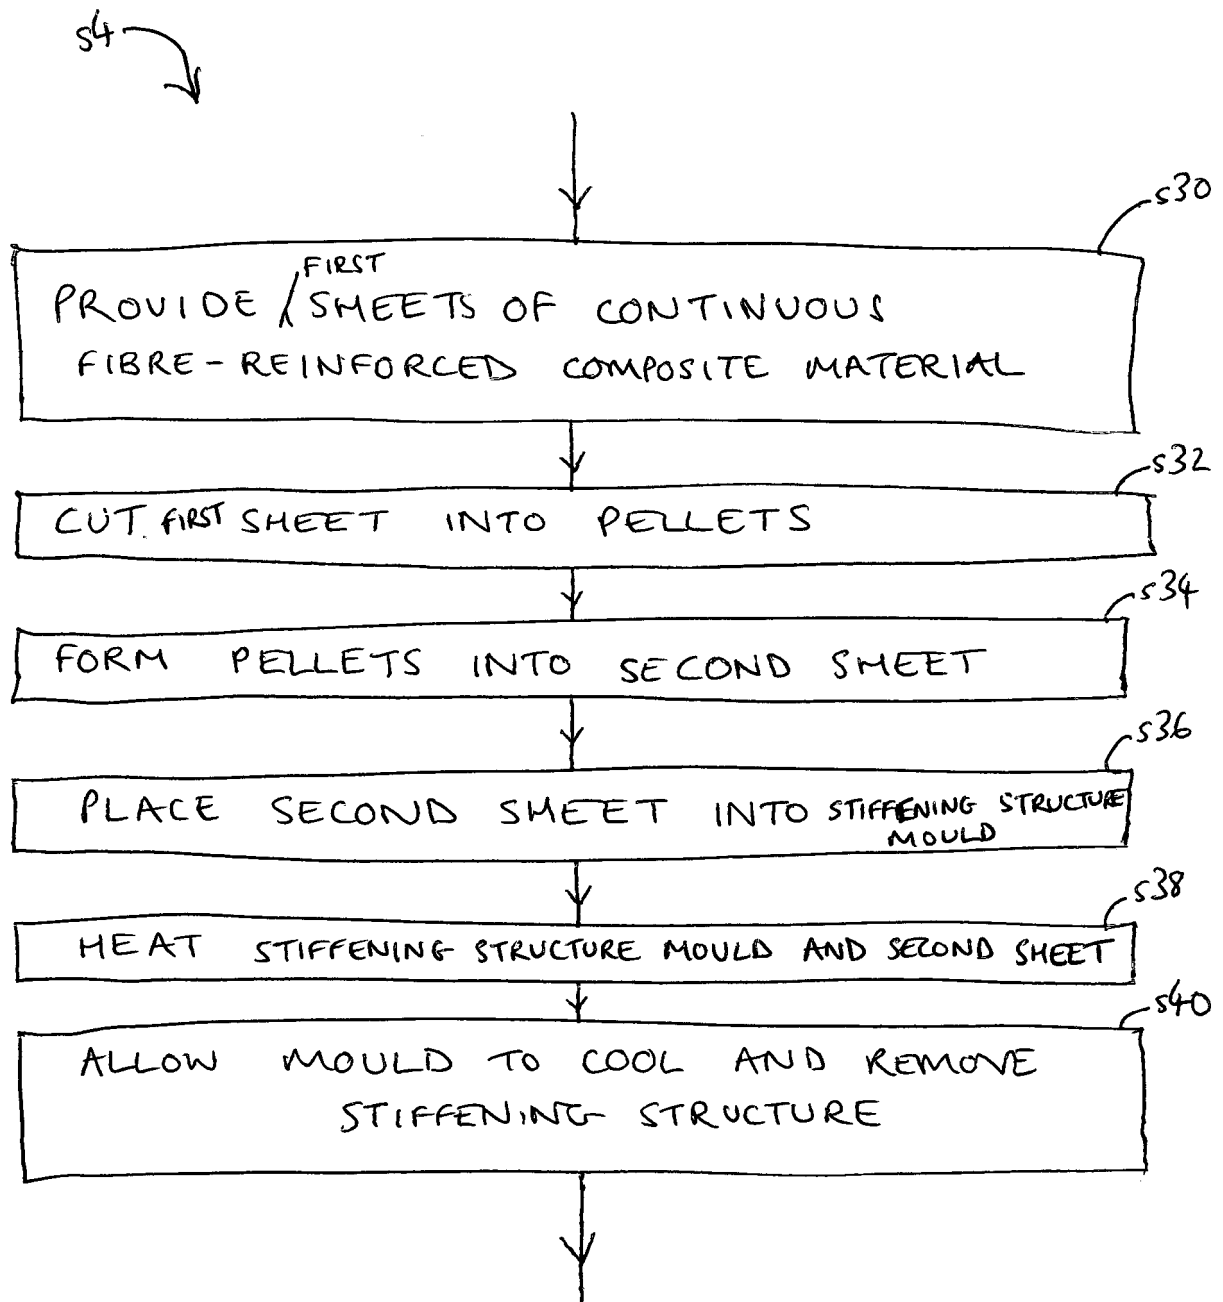 s4
s30
PROVIDE FIRST SHEETS OF CONTINUOUS
FIBRE-REINFORCED COMPOSITE MATERIAL
s32
CUT FIRST SHEET INTO PELLETS
s34
FORM PELLETS INTO SECOND SHEET
s36
PLACE SECOND SHEET INTO STIFFENING STRUCTURE
MOULD
s38
HEAT STIFFENING STRUCTURE MOULD AND SECOND SHEET
s40
ALLOW MOULD TO COOL AND REMOVE
STIFFENING STRUCTURE